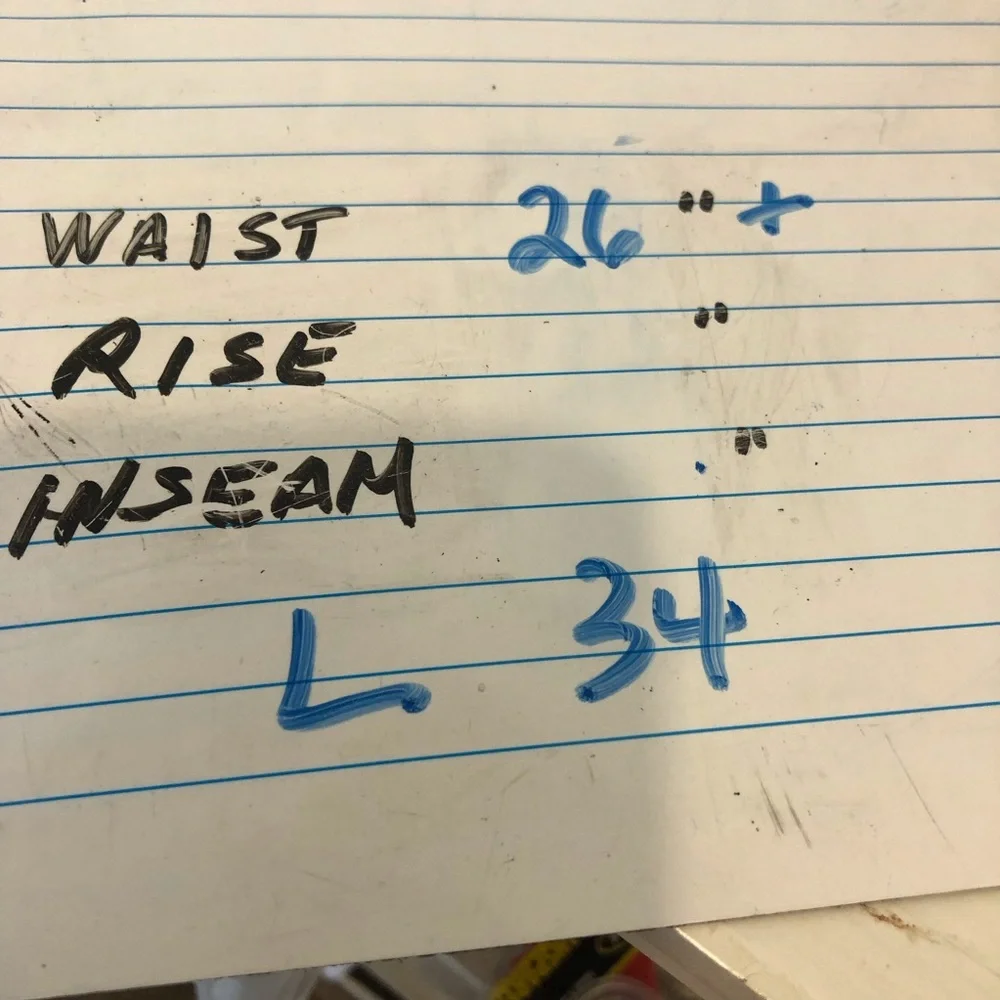 WAIST 26 " +
RISE "
INSEAM "
L 34